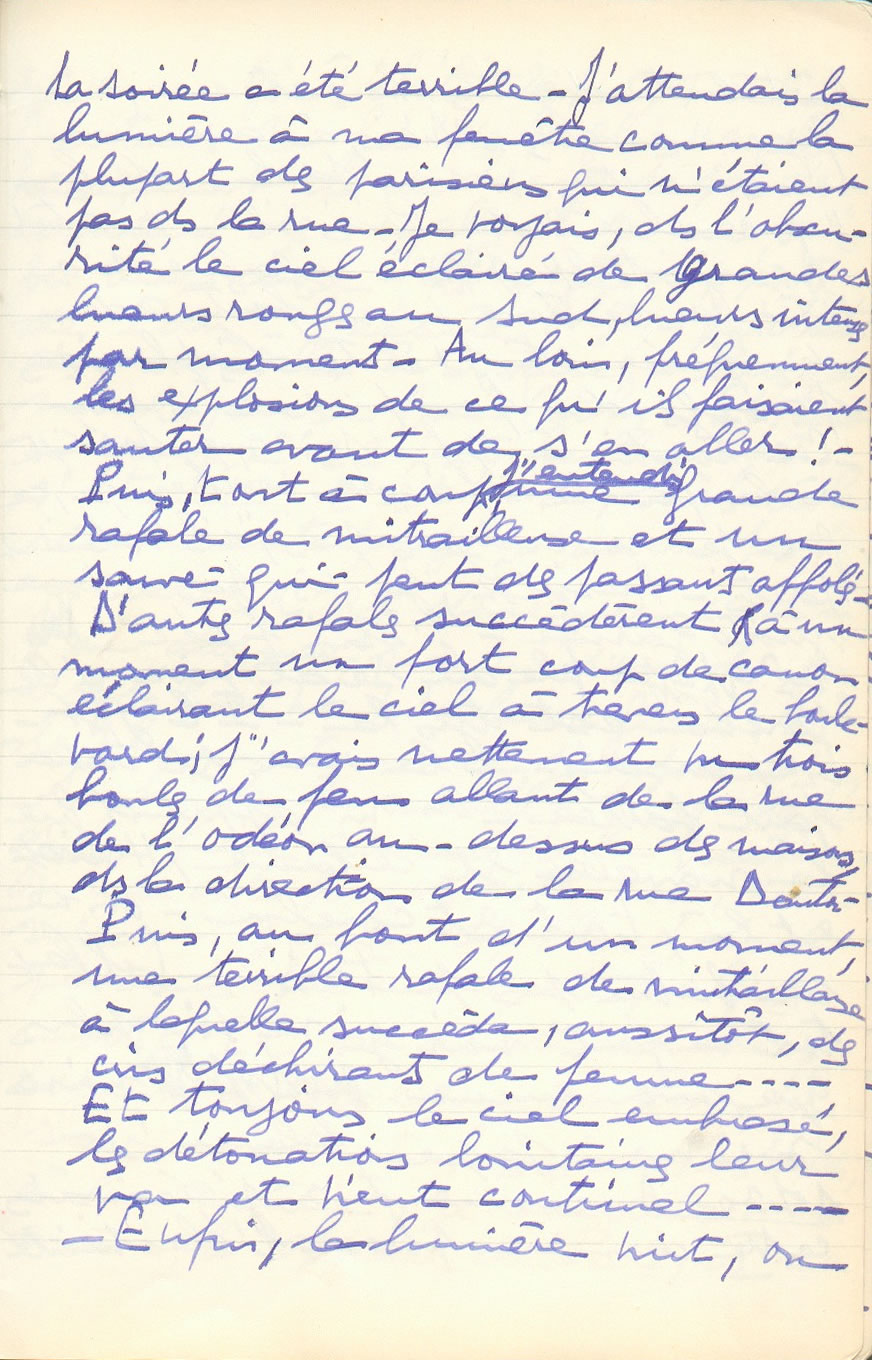 La soirée a été terrible - J'attendais la
lumière à ma fenêtre comme la
plupart des parisiens qui n'étaient
pas ds la rue - Je voyais, ds l'obscu-
rité le ciel éclairé de grandes
lueurs rouges au sud, lueurs intenses
par moment - Au loin, fréquemment,
les explosions de ce qu'ils faisaient
sauter avant de s'en aller ! -
Puis, tout à coup, j'entendis une grande
rafale de mitrailleuse et un
sauve-qui-peut des passants affolés -
D'autres rafales succédèrent à un
moment un fort coup de canon
éclairant le ciel à travers le boule-
vard ; j'avais nettement vu trois
boules de feu allant de la rue
de l'odéon au-dessus des maisons,
ds la direction de la rue Danton -
Puis, au bout d'un moment,
une terrible rafale de mitrailleuse
à laquelle succéda, aussitôt, des
cris déchirants de femme ----
Et toujours le ciel embrasé,
les détonations lointaines leur
va et vient continuel ----
- Enfin, la lumière vint, on